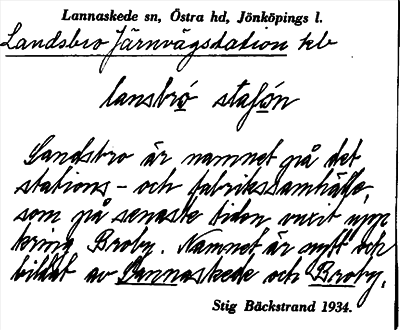 Lannaskede sn, Östra hd, Jönköpings l.
Landsbro Järnvägstation kb
lansbró stasón
Landsbro är namnet på det
stations- och fabrikssamhälle,
som på senaste tiden vuxit upp
kring Broby. Namnet är nytt och
bildat av Lannaskede och Broby.
Stig Bäckstrand 1934.